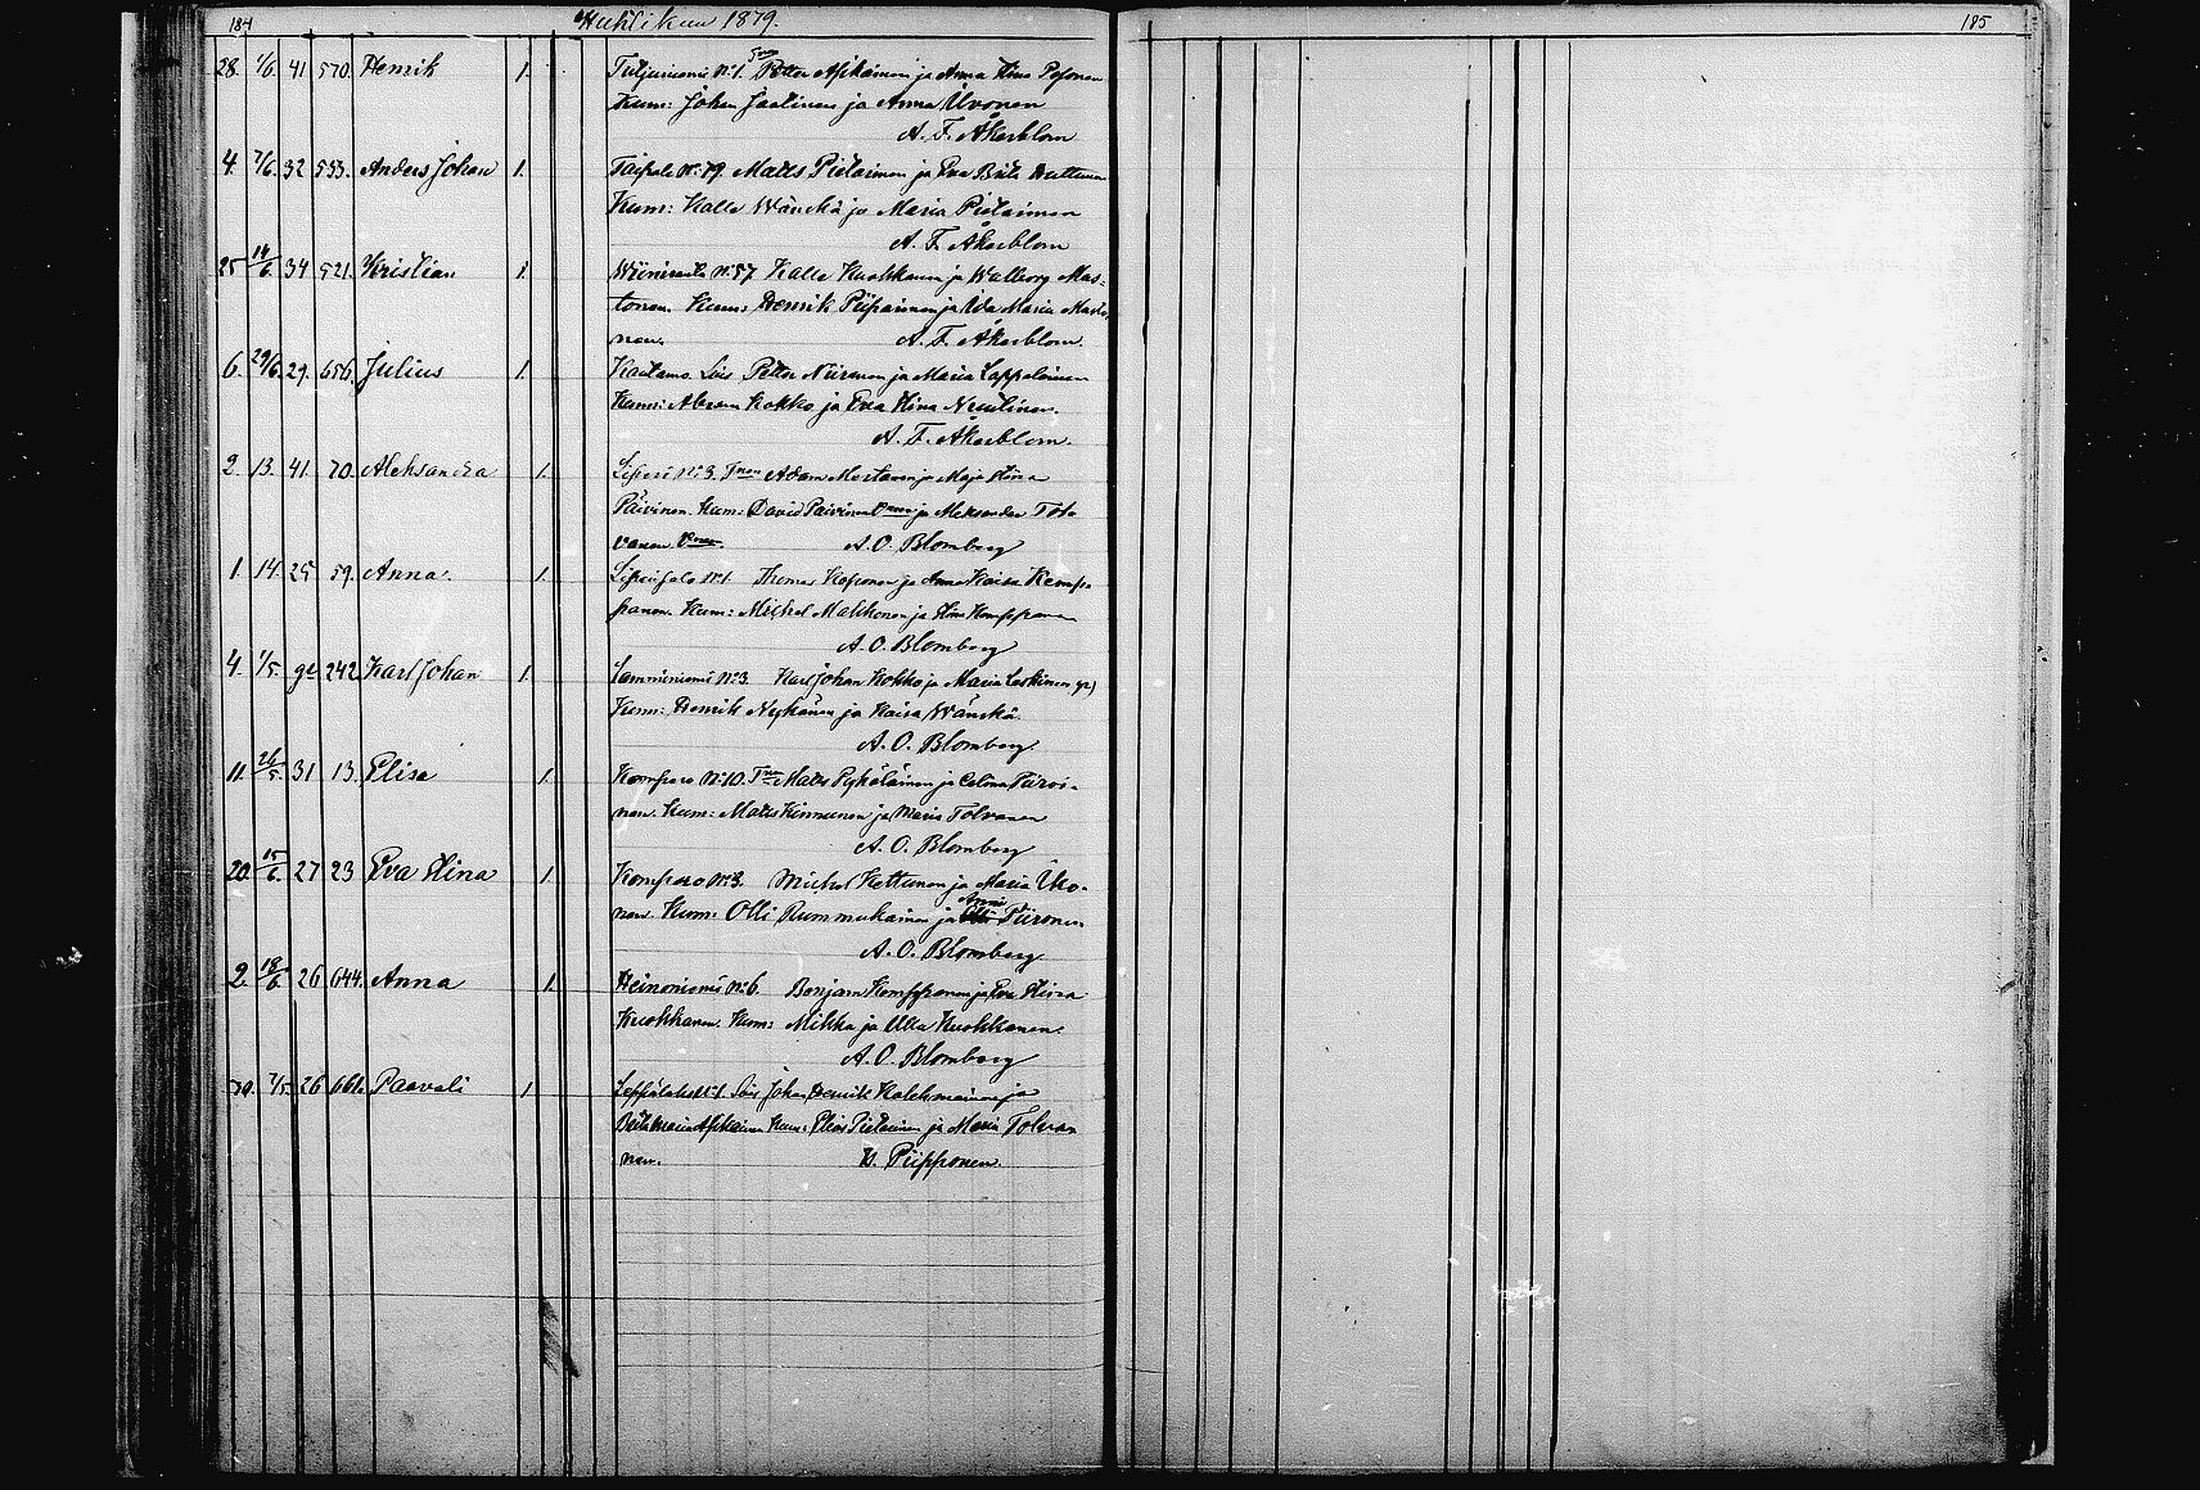 184 Huhtikuu 1879. 185
28. 1/6. 41 570. Henrik 1. Tuljuniemi N:o 1. Petter Asikainen ja Anna Stina
Kum: Johan Jaatinen ja Anna Uvonen
A. F. Åkerblom
4. 7/6. 32 553. Anders Johan 1. Taipale N:o 79. Matts Pietarinen ja Eva Brita Huttunen
Kum: Kalle Wänskä ja Maria Pietarinen
A. F. Åkerblom
25 14/6. 34 521. Kristian 1. Wiiniranta N:o 57 Kalle Kuokkanen ja Walborg Mus-
tonen. Kum: Henrik Piiparinen ja Ida Maria Musto-
nen. A. F. Åkerblom.
6. 29/6. 29. 656. Julius 1. Kaatamo. Lois Petter Niiranen ja Maria Lappalainen
Kum: Abram Kokko ja Eva Stina Nuutinen.
A. F. Åkerblom.
2. 13. 41. 70. Aleksandra 1. Liperi N:o 3. Adam Mustonen ja Maja Stina
Päivinen. Kum: David Päivinen ja Aleksandra Tol-
vanen. A. O. Blomberg
1. 14. 25 59. Anna. 1. Liperinsalo N:o 1. Thomas Kaponen ja Anna Kaisa Kemp-
panen. Kum: Michel Makkonen ja Stina Kemppanen
A. O. Blomberg
4. 1/5. 242 Karl Johan 1. Lamminniemi N:o 3. Karl Johan Kokko ja Maria Leskinen
Kum: Henrik Nykänen ja Kaisa Wänskä.
A. O. Blomberg.
11. 26/5. 31 13. Elisa 1. Kompero N:o 10. Matts Pykäläinen ja Piiroi-
nen. Kum: Matts Kinnunen ja Maria Tolvanen
A. O. Blomberg
20. 15/6. 27 23 Eva Stina 1. Kompero N:o 3. Michel Kettunen ja Maria Uvo-
nen. Kum: Olli Rummukainen ja Anni Piironen.
A. O. Blomberg
2. 18/6. 26 644. Anna 1. Heinoniemi N:o 6. Benjam Kemppanen ja Eva Stina
Kuokkanen. Kum: Mikko ja Ulla Kuokkanen.
A. O. Blomberg
30. 7/5. 26 661. Paavali 1 Leppälaks N:o 1. Lois Johan Henrik Kolehmainen ja
Brita Maria Asikainen Kum: Elias Pietarinen ja Maria Tolva-
nen. K. Piipponen.